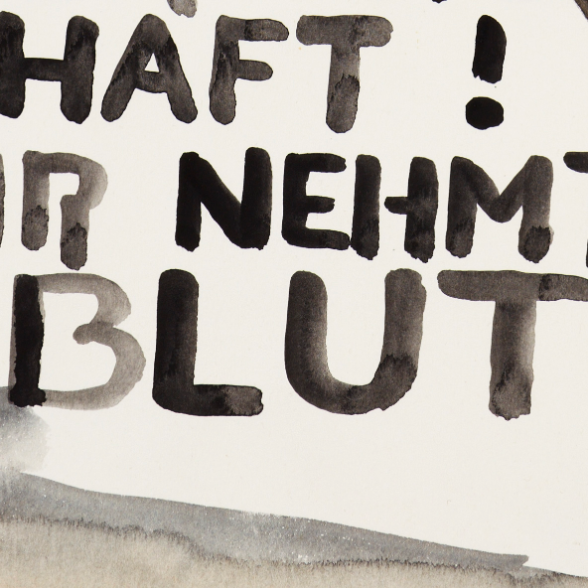 HAFT !
IR NEHMT
BLUT